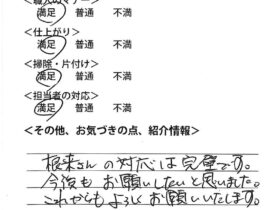 満足 普通 不満
<仕上がり>
満足 普通 不満
<掃除・片付け>
満足 普通 不満
<担当者の対応>
満足 普通 不満
<その他、お気づきの点、紹介情報>
根来さんの対応は完璧です。
今後もお願いしたいと思いました。
これからもよろしくお願いいたします。